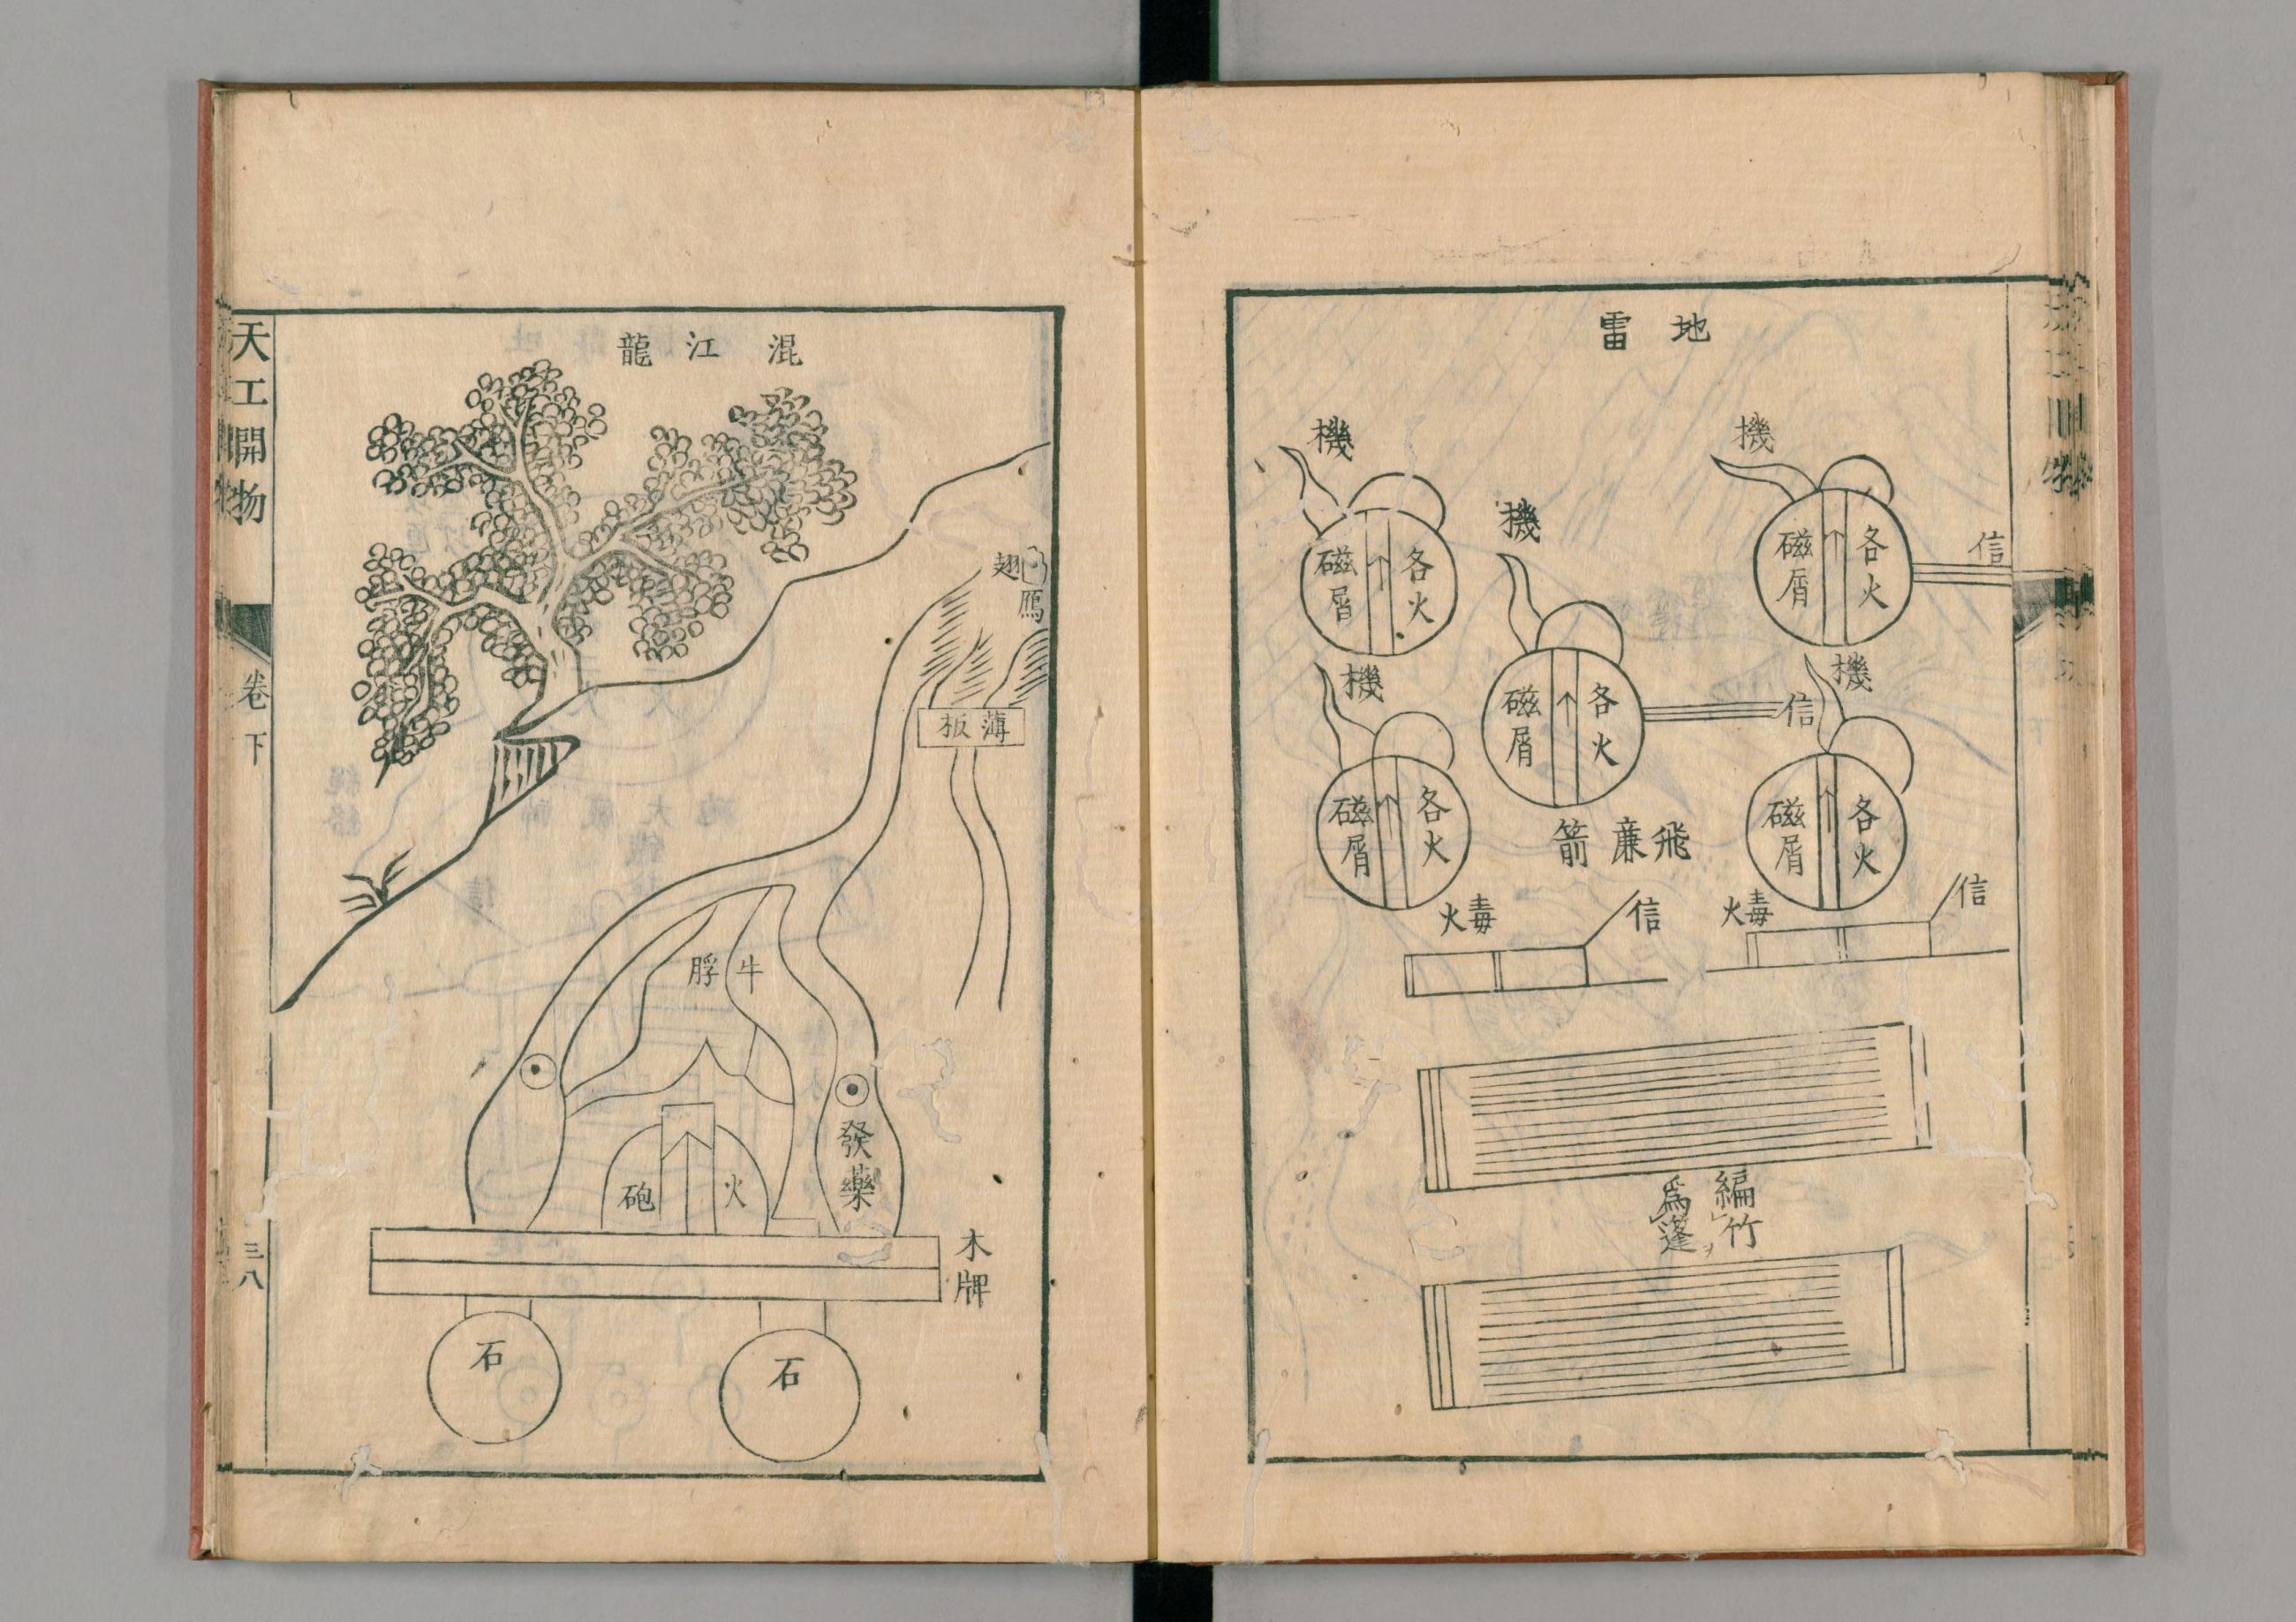 地雷
機
各火
磁屑
信
機
各火
磁屑
信
機
各火
磁屑
機
各火
磁屑
機
各火
磁屑
飛廉箭
信
毒火
信
毒火
編竹
爲篷
混江龍
雁翅
薄板
牛脬
發藥
火砲
木牌
石
石
天工開物
卷下
三八